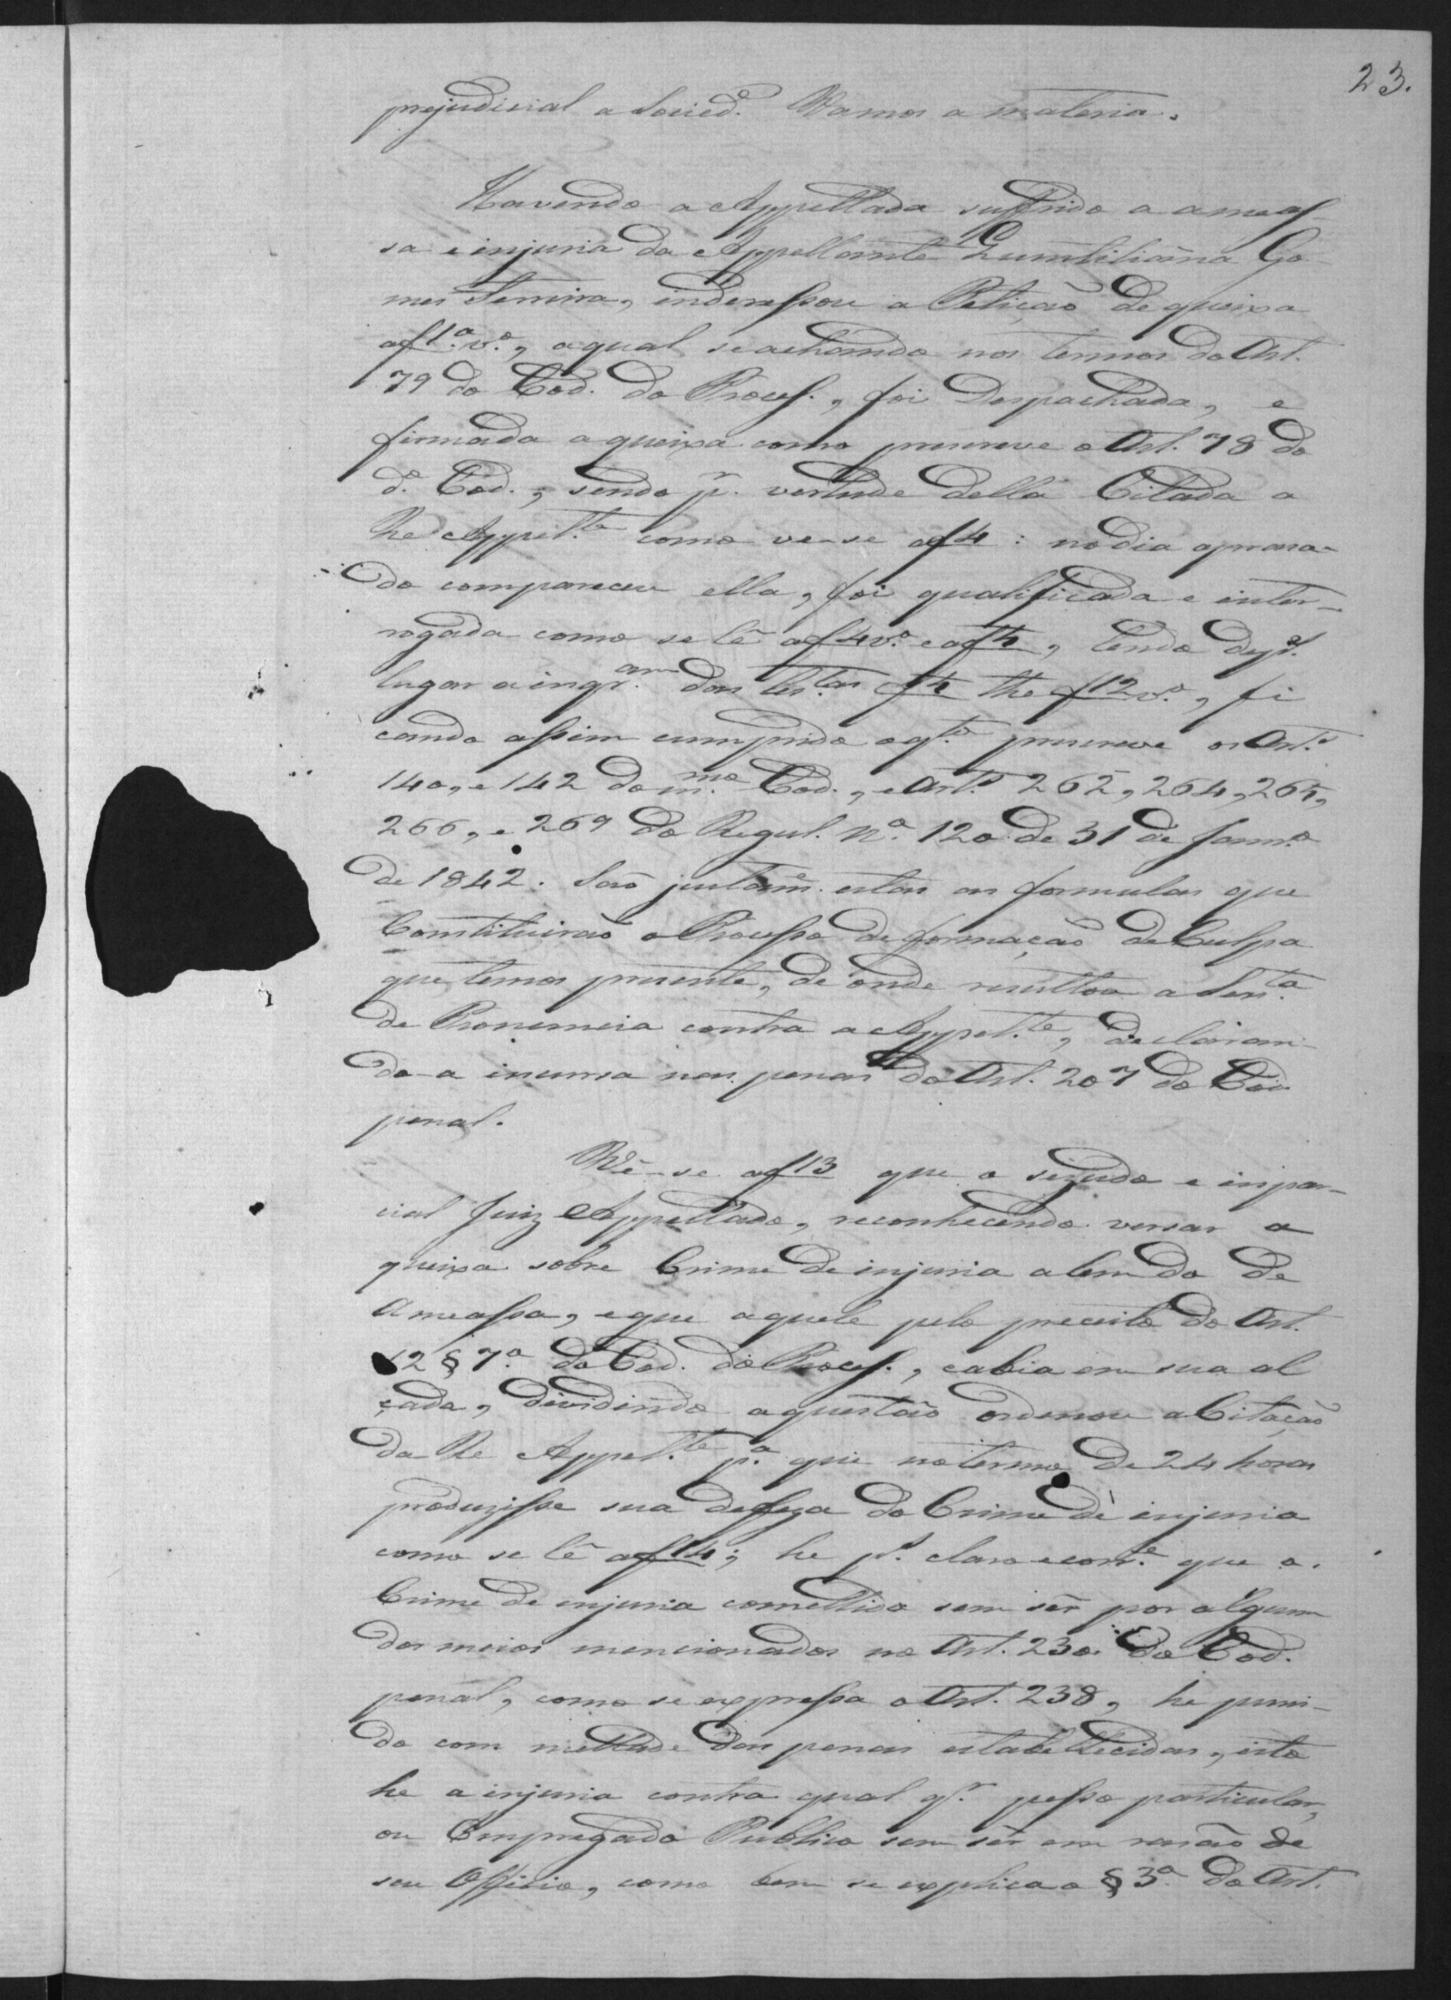 23.
prejudicial a Socied.e Vamos a materia.
Havendo a Appellada suffrido a ameas-
sa e injuria da Appellante Go-
mes Ferreira, inderessou a Petição de queixa
af 1.a v.o, a qual se achando nos termos do Art.
79 do Cod. do Process., foi Despachada, e
firmada a queixa como prescreve o Art. 78 do
d.o Cod., sendo p.r vertude della Citada a
Re Appel.te como ve-se af 4: no dia apraza-
do compareceu ella, foi qualificada e inter-
rogada como se lê af 4v.o e af 5, tendo dep.s
lugar a inqr.am das tes.tas f 5 the f 12 v.o, fi
cando assim cumprido o q.to prescreve os Art.s
140, e 142 do m.mo Cod., e Art.s 262, 264, 265,
266, e 269 do Regul. N.o 120 de 31 de Jann.o
de 1842. São justam. estas as formulas que
Constituirão o Processo de formação de Culpa
que temos presente, de onde resultou a Sen.ta
de Pronuncia contra a Appel.te, declaran-
do-a incursa nas penas do Art. 207 do Cod
penal.
Vê-se af 13 que o sezudo e inpar-
cial Juiz Appellado, reconhecendo versar a
queixa sobre Crime de injuria alem do de
Ameassa, e que aquele pelo preceito do Art.
12 § 7.o do Cod. do Process., cabia em sua al
çada, dividindo a questão ordenou a Citação
da Re Appel.te p.a que no termo de 24 horas
produzisse sua deffeza do Crime de injuria
como se lê af 14; he p.s claro e con.e que o
Crime de injuria comettido sem sêr por algum
dos meios mencionados no Art. 230 do Cod.
penal, como se expressa o Art. 238, he puni-
do com mettade das penas estabellecidas, isto
he a injuria contra qual q.r pessoa particular,
ou Empregado Publico sem sêr em rasão de
seu Officio, como bem se explica o § 3.o do Art.